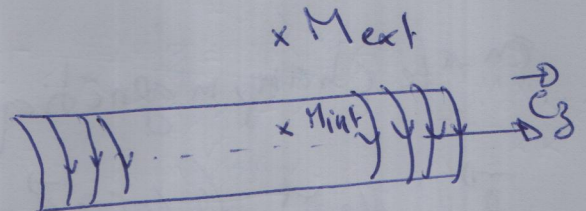 x M ext
x M int
e z